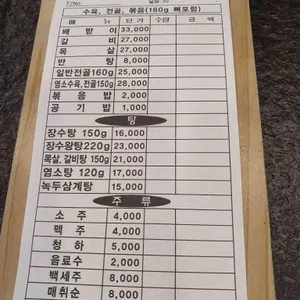 T/No
수육, 전골, 볶음(180g 뼈포함)
메 뉴 단 가 수량 금 액
배 받 이 33,000
갈 비 27,000
목 살 27,000
반 탕 8,000
일반전골160g 25,000
염소수육,전골150g 28,000
볶 음 밥 2,000
공 기 밥 1,000
탕
장수탕 150g 16,000
장수왕탕220g 23,000
목살, 갈비탕 150g 21,000
염소탕 120g 17,000
녹두삼계탕 15,000
주 류
소 주 4,000
맥 주 4,000
청 하 5,000
음료수 2,000
백세주 8,000
매취순 8,000